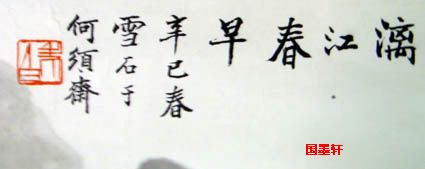 漓江春早
辛巳春
雪石于
何须齋
国墨轩